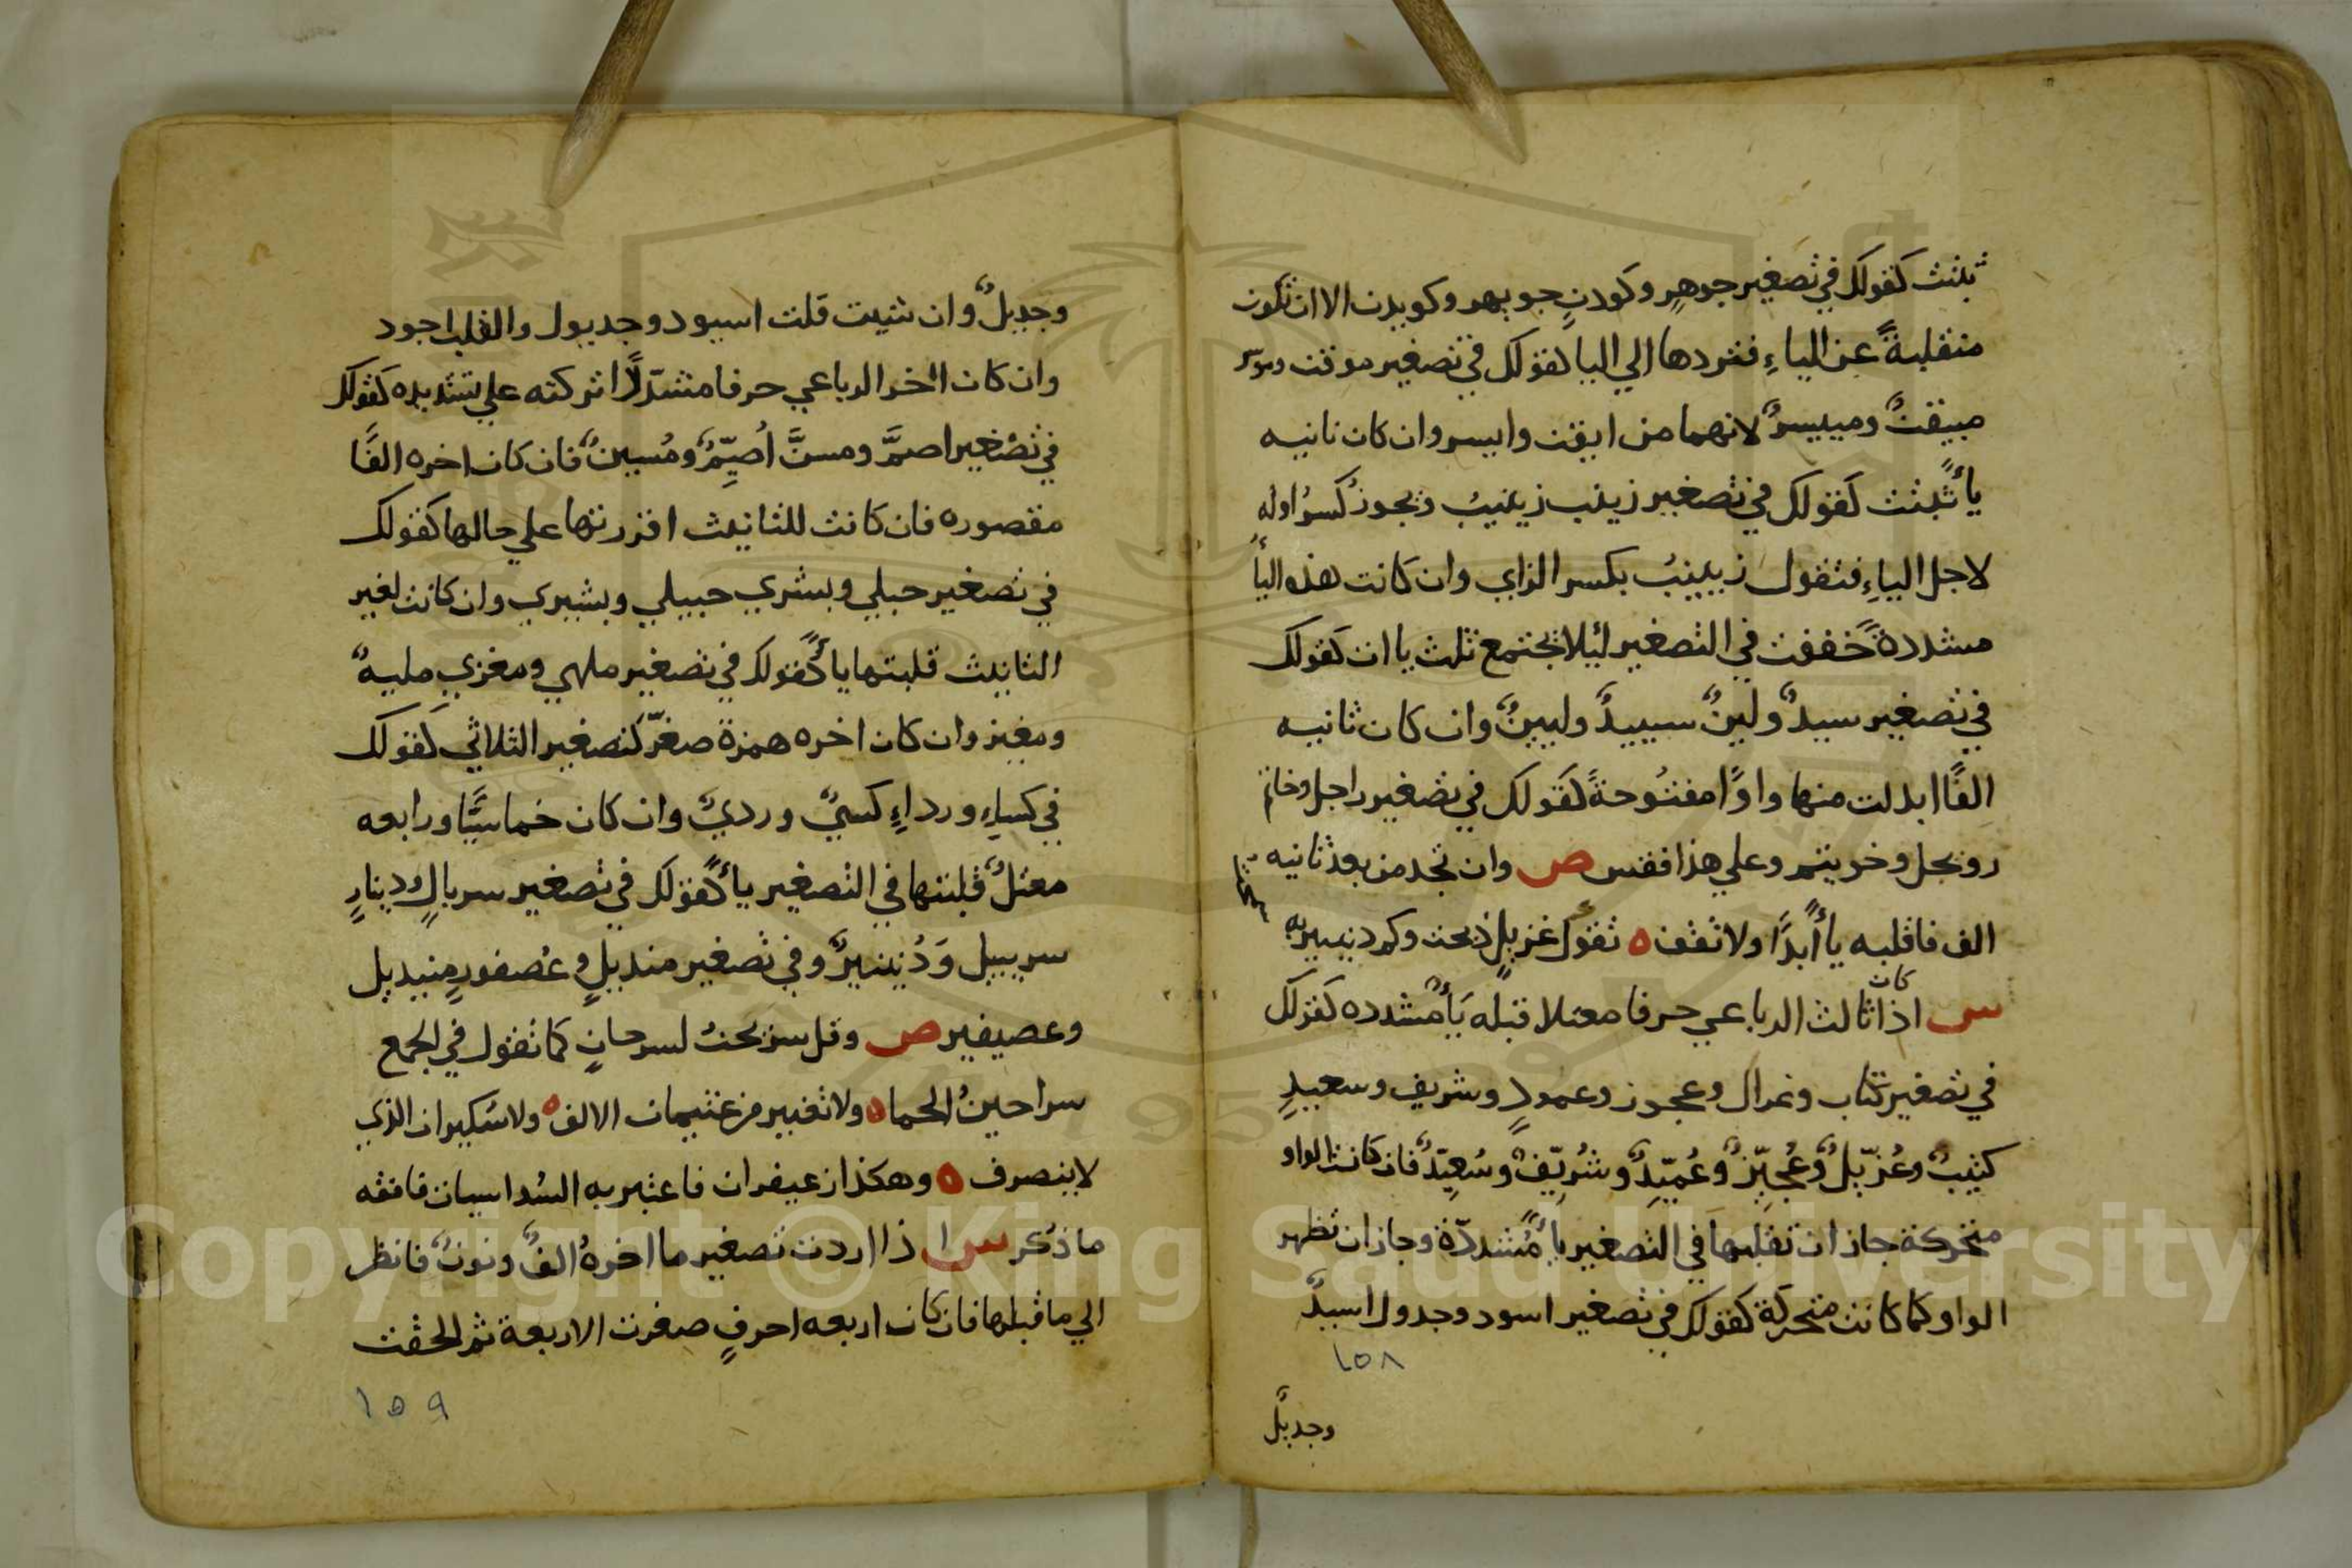 ثبتت كقولك في تصغير جوهرٍ وكودنٍ جويهر وكويدن الا ان تكون
منقلبةً عن الياءِ فتردها الي اليا كقولك في تصغير موقت وموسر
مييقتٌ ومييسرٌ لانهما من ايقت وايسر وان كان ثانيه
ياًء ثبتت كقولك في تصغير زينب زيينبُ ويجوز كسرُ اوله
لاجل الياءِ فتقول زيينبُ بكسر الزاي وان كانت هذه الياءُ
مشددةً خففت في التصغير ليلا تجتمع ثلث ياات كقولك
في تصغير سيدٌ ولينٌ سييدٌ وليينٌ وان كان ثانيه
الفًا ابدلت منها واوًا مفتُوحةً كقولك في تصغير راجل وخاتم
رويجل وخويتم وعلي هذا فقس ص وان تجد من بعد ثانيه
الف فاقلبه ياءً ابدًا ولا تقف ه تقول كم غزيلٍ ذبحت وكم دنيبير به
سمحت
س اذا كان ثالث الرباعي حرفا معتلا قبله ياءٌ مشدده كقولك
في تصغير كتاب وغزال وعجوز وعمودٍ وشريف وسعيدٍ
كتيبٌ وغُزيّلٌ وعُجيّزٌ وعُميّدٌ وشُريّفٌ وسُعيّدٌ فان كانت الواو
متحركة جاز ان تقلبها في التصغير ياءً مُشددّة وجاز ان تظهر
الواو كما كانت متحركة كقولك في تصغير اسود وجدول اسيدٌ
١٥٨
وجديلٌ
وجديلٌ وان شيت قلت اسيود وجديول والقلب اجود
وان كان اخر الرباعي حرفا مشدّدًا تركته علي تشديده كقولك
في تصْغير اصمَّ ومسنَّ اُصيِّمٌ ومُسينٌ فان كان اخره الفًا
مقصوره فان كانت للتانيث اقررتها علي حالها كقولك
في تصغير حبلي وبشري حبيلي وبشيري وان كانت لغير
التانيث قلبتها ياءً كقولك في تصغير ملهي ومغزي مليهٌ
ومغيز وان كان اخره همزة صغّر كتصغير الثلاثي كقولك
في كساءٍ ورداءٍ كسيٌ ورديٌ وان كان خماسيًّا ورابعه
معتلٌ قلبتها في التصغير ياءً كقولك في تصغير سربالٍ ودينارٍ
سريبيل وَدُنينيرٌ وفي تصغير منديلٍ وعُصفورٍ منيديل
وعصيفير ص وقل سريحتُ لسرحانٍ كما تقول في الجمع
سراحينُ الحما ه ولا تغيير من عثيمان الالف ه ولا سُكيران الذي
لا ينصرف ه وهكذا زعيفران فاعتبر به السُداسيات فافقه
ما ذكر س اذا اردت تصغير ما اخرهُ الفٌ ونونٌ فانظر
الي ما قبلها فان كان اربعه احرفٍ صغرت الاربعة ثم الحقت
١٥٩
Copyright © King Saud University